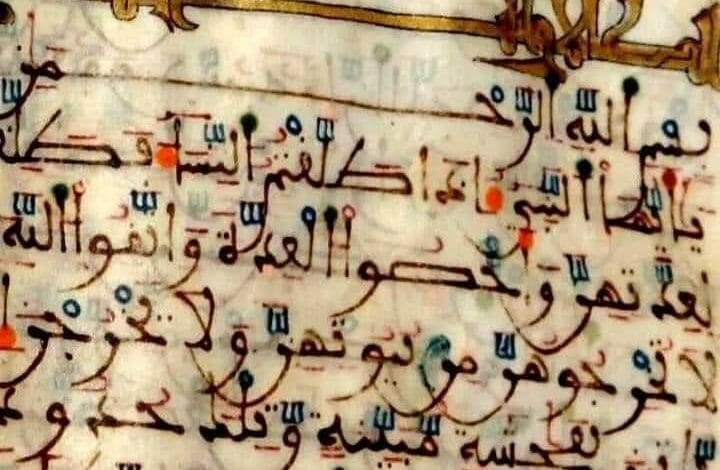 بسم الله الرحمن
يايها النبي اذا طلقتم النسا فطلقو
لعدتهن واحصوا العدة واتقوا الله
لا تخرجوهن من بيوتهن ولا يخرجن
بفحشة مبينة وتلك حدو